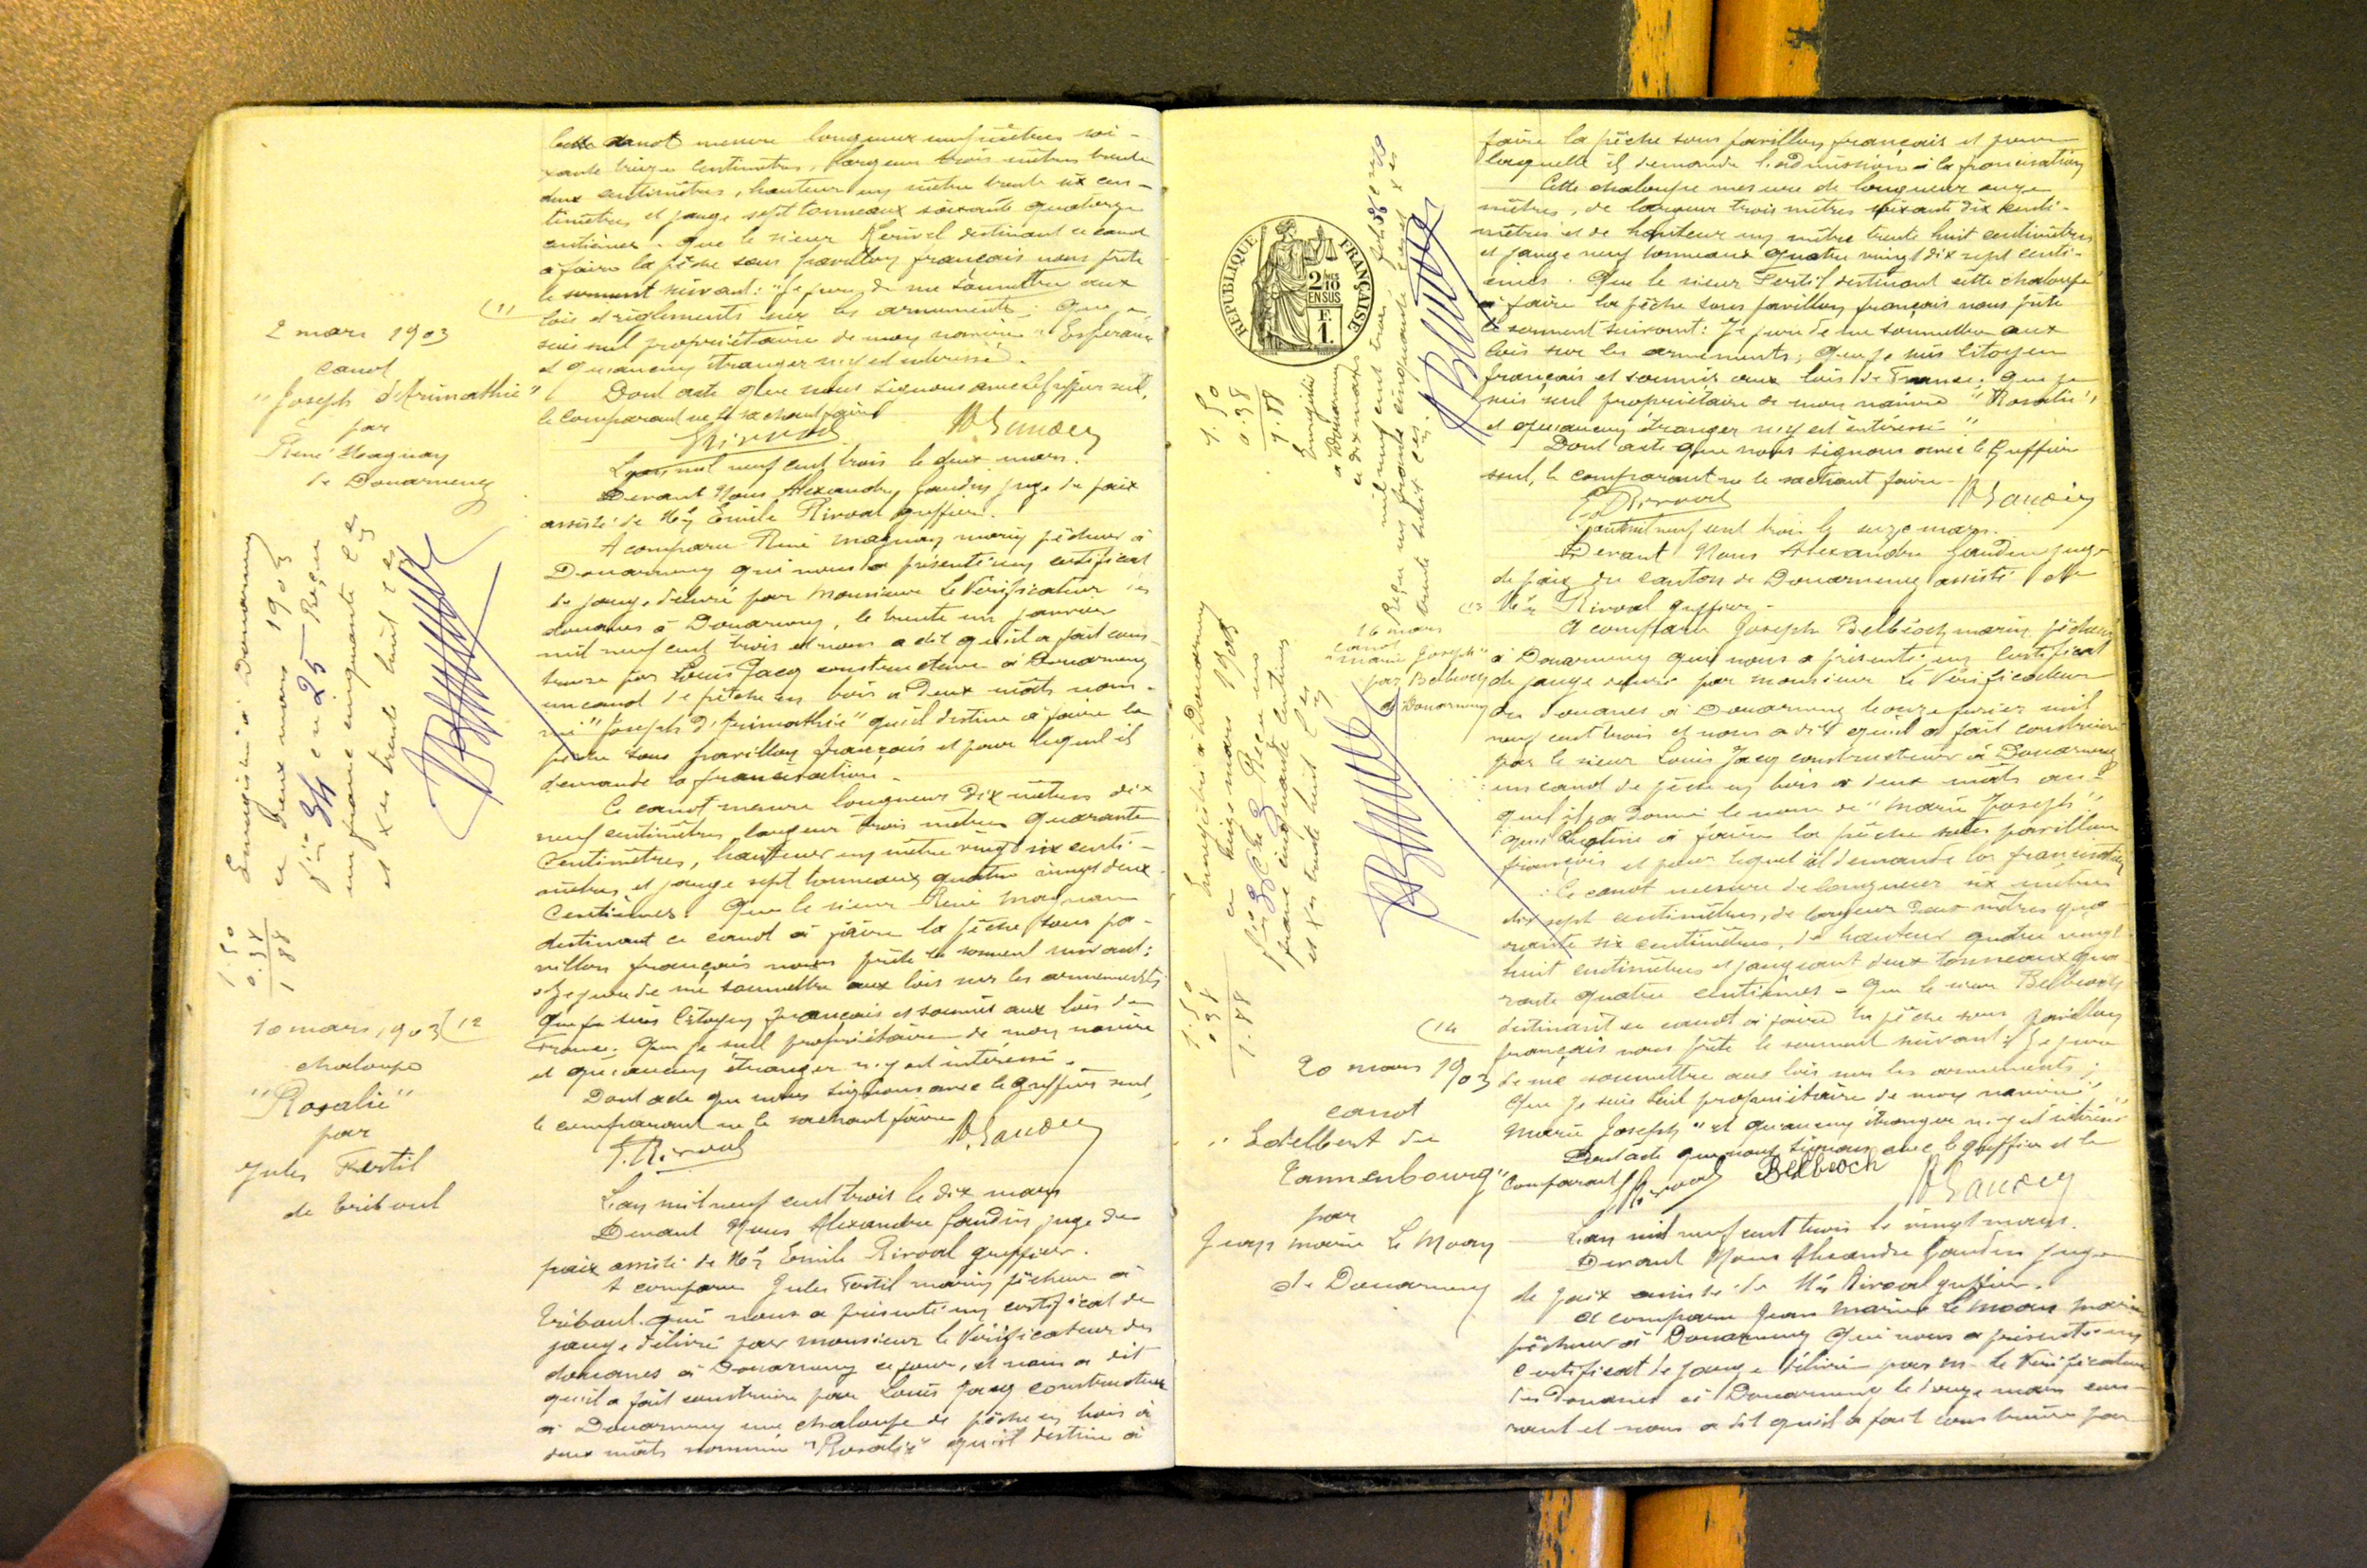 Cette canot mesure longueur neuf mètres soi-
xante treize centimètres, largeur trois mètres trente
deux centimètres, hauteur un mètre trente six cen-
timètres et jauge sept tonneaux soixante quatorze
centièmes. Que le sieur Kerivel destinant ce canot
à faire la pêche sous pavillon français nous prête
le serment suivant: "Je jure de me soumettre aux
lois et règlements sur les armements. Que je
suis seul propriétaire de mon navire "Espérance
et qu'aucun étranger n'y est intéressé.
Dont acte que nous signons avec le greffier seul,
le comparant ne le sachant faire
E. Rivoal A. Gaudin
(11
2 mars 1903
canot
"Joseph d'Arimathie"
par
René Magnan
de Douarnenez
L'an mil neuf cent trois le deux mars.
Devant Nous Alexandre Gaudin juge de paix
assisté de Me Emile Rivoal greffier.
A comparu René Magnan marin pêcheur à
Douarnenez qui nous a présenté un certificat
de jauge délivré par Monsieur Le Vérificateur des
douanes à Douarnenez, le trente un janvier
mil neuf cent trois et nous a dit qu'il a fait cons-
truire par Louis Jacq constructeur à Douarnenez
un canot de pêche en bois à deux mâts nom-
mé "Joseph d'Arimathie" qu'il destine à faire la
pêche sous pavillon français et pour lequel il
demande la francisation.
Ce canot mesure longueur dix mètres dix
neuf centimètres largeur trois mètres quarante
centimètres, hauteur un mètre vingt six centi-
mètres et jauge sept tonneaux quatre vingt deux
centièmes. Que le sieur René Magnan
destinant ce canot à faire la pêche sous pa-
villon français nous prête le serment suivant:
"Je jure de me soumettre aux lois sur les armements
Que je suis Citoyen français et soumis aux lois de
France. Que je suis seul propriétaire de mon navire
et qu'aucun étranger n'y est intéressé.
Dont acte que nous signons avec le greffier seul,
le comparant ne le sachant faire
E. Rivoal A. Gaudin
Enregistré à Douarnenez
ce deux mars 1903
f° 34 c 25 Reçu
un franc cinquante ces
et xes trente huit ces
1.50
0.38
1 88
10 mars 1903 (12
chaloupe
"Rosalie"
par
Jules Fertil
de Tréboul
L'an mil neuf cent trois le dix mars
Devant Nous Alexandre Gaudin juge de
paix assisté de Me Emile Rivoal greffier.
A comparu Jules Fertil marin pêcheur à
Tréboul qui nous a présenté un certificat de
jauge délivré par monsieur le Vérificateur des
douanes à Douarnenez ce jour, et nous a dit
qu'il a fait construire par Louis Jacq constructeur
à Douarnenez une chaloupe de pêche en bois à
deux mâts nommée "Rosalie" qu'il destine à
RÉPUBLIQUE FRANÇAISE
2 10MES
EN SUS
F.
1.
faire la pêche sous pavillon français et pour
laquelle il demande l'admission à la francisation
Cette chaloupe mesure de longueur onze
mètres, de largeur trois mètres soixante dix centi-
mètres et de hauteur un mètre trente huit centimètres
et jauge neuf tonneaux quatre vingt dix sept centi-
èmes. Que le sieur Fertil destinant cette chaloupe
à faire la pêche sous pavillon français nous prête
le serment suivant: Je jure de me soumettre aux
lois sur les armements; Que je suis Citoyen
français et soumis aux lois de France; Que je
suis seul propriétaire de mon navire "Rosalie",
et qu'aucun étranger n'y est intéressé"
Dont acte que nous signons avec le Greffier
seul, le comparant ne le sachant faire.
E. Rivoal A. Gaudin
1.50
0.38
1.88
Enregistré
à Douarnenez
ce dix mars
mil neuf cent trois
Reçu un franc cinquante ces
trente huit ces
(13
16 mars
canot
"Marie Joseph"
par Belbeoch
de Douarnenez
L'an mil neuf cent trois le seize mars.
Devant Nous Alexandre Gaudin juge
de paix du canton de Douarnenez assisté de
Me Rivoal greffier.
A comparu Joseph Belbéoch marin pêcheur
à Douarnenez qui nous a présenté un certificat
de jauge délivré par Monsieur Le Vérificateur
des douanes à Douarnenez le onze février mil
neuf cent trois et nous a dit qu'il a fait construire
par le sieur Louis Jacq constructeur à Douarnenez
un canot de pêche en bois à deux mâts au-
quel il a donné le nom de "Marie Joseph"
qu'il destine à faire la pêche sous pavillon
français et pour lequel il demande la francisation
Ce canot mesure de longueur six mètres
dix sept centimètres, de largeur deux mètres qua-
rante six centimètres, de hauteur quatre vingt
huit centimètres et jaugeant deux tonneaux qua-
rante quatre centièmes - Que le sieur Belbeoch
destinant ce canot à faire la pêche sous pavillon
français nous prête le serment suivant: "Je jure
de me soumettre aux lois sur les armements;
Que je suis seul propriétaire de mon navire
Marie Joseph" et qu'aucun étranger n'y est intéressé
Dont acte que nous signons avec le greffier et le
comparant E. Rivoal Belbeoch A. Gaudin
Enregistré à Douarnenez
ce seize mars 1903
Reçu un
franc cinquante centimes
et xes trente huit ces
1.50
0 38
1.88
(14
20 mars 1903
canot
"Edelbert de
Tannenbourg"
par
Jean Marie Le Moan
de Douarnenez
L'an mil neuf cent trois le vingt mars.
Devant Nous Alexandre Gaudin juge
de paix assisté de Me Rivoal greffier.
A comparu Jean Marie Le Moan marin
pêcheur à Douarnenez qui nous a présenté un
certificat de jauge délivré par M. le Vérificateur
des Douanes à Douarnenez le douze mars cou-
rant et nous a dit qu'il a fait construire par